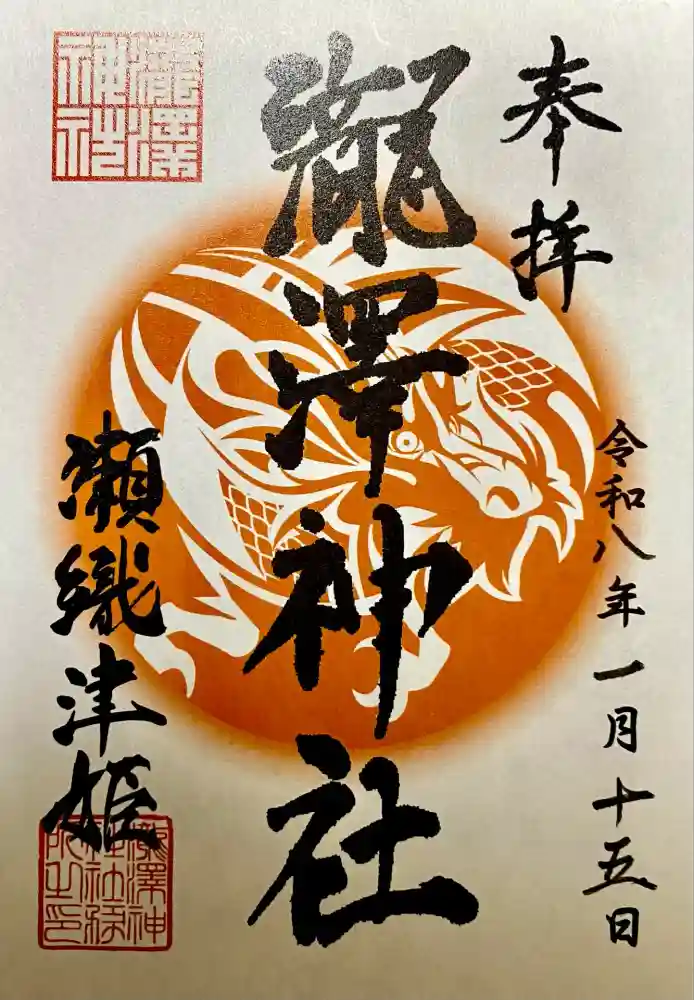 奉拝
令和八年一月十五日
瀧澤神社
瀬織津姫
瀧澤
神社
瀧澤神
社社務
所之印